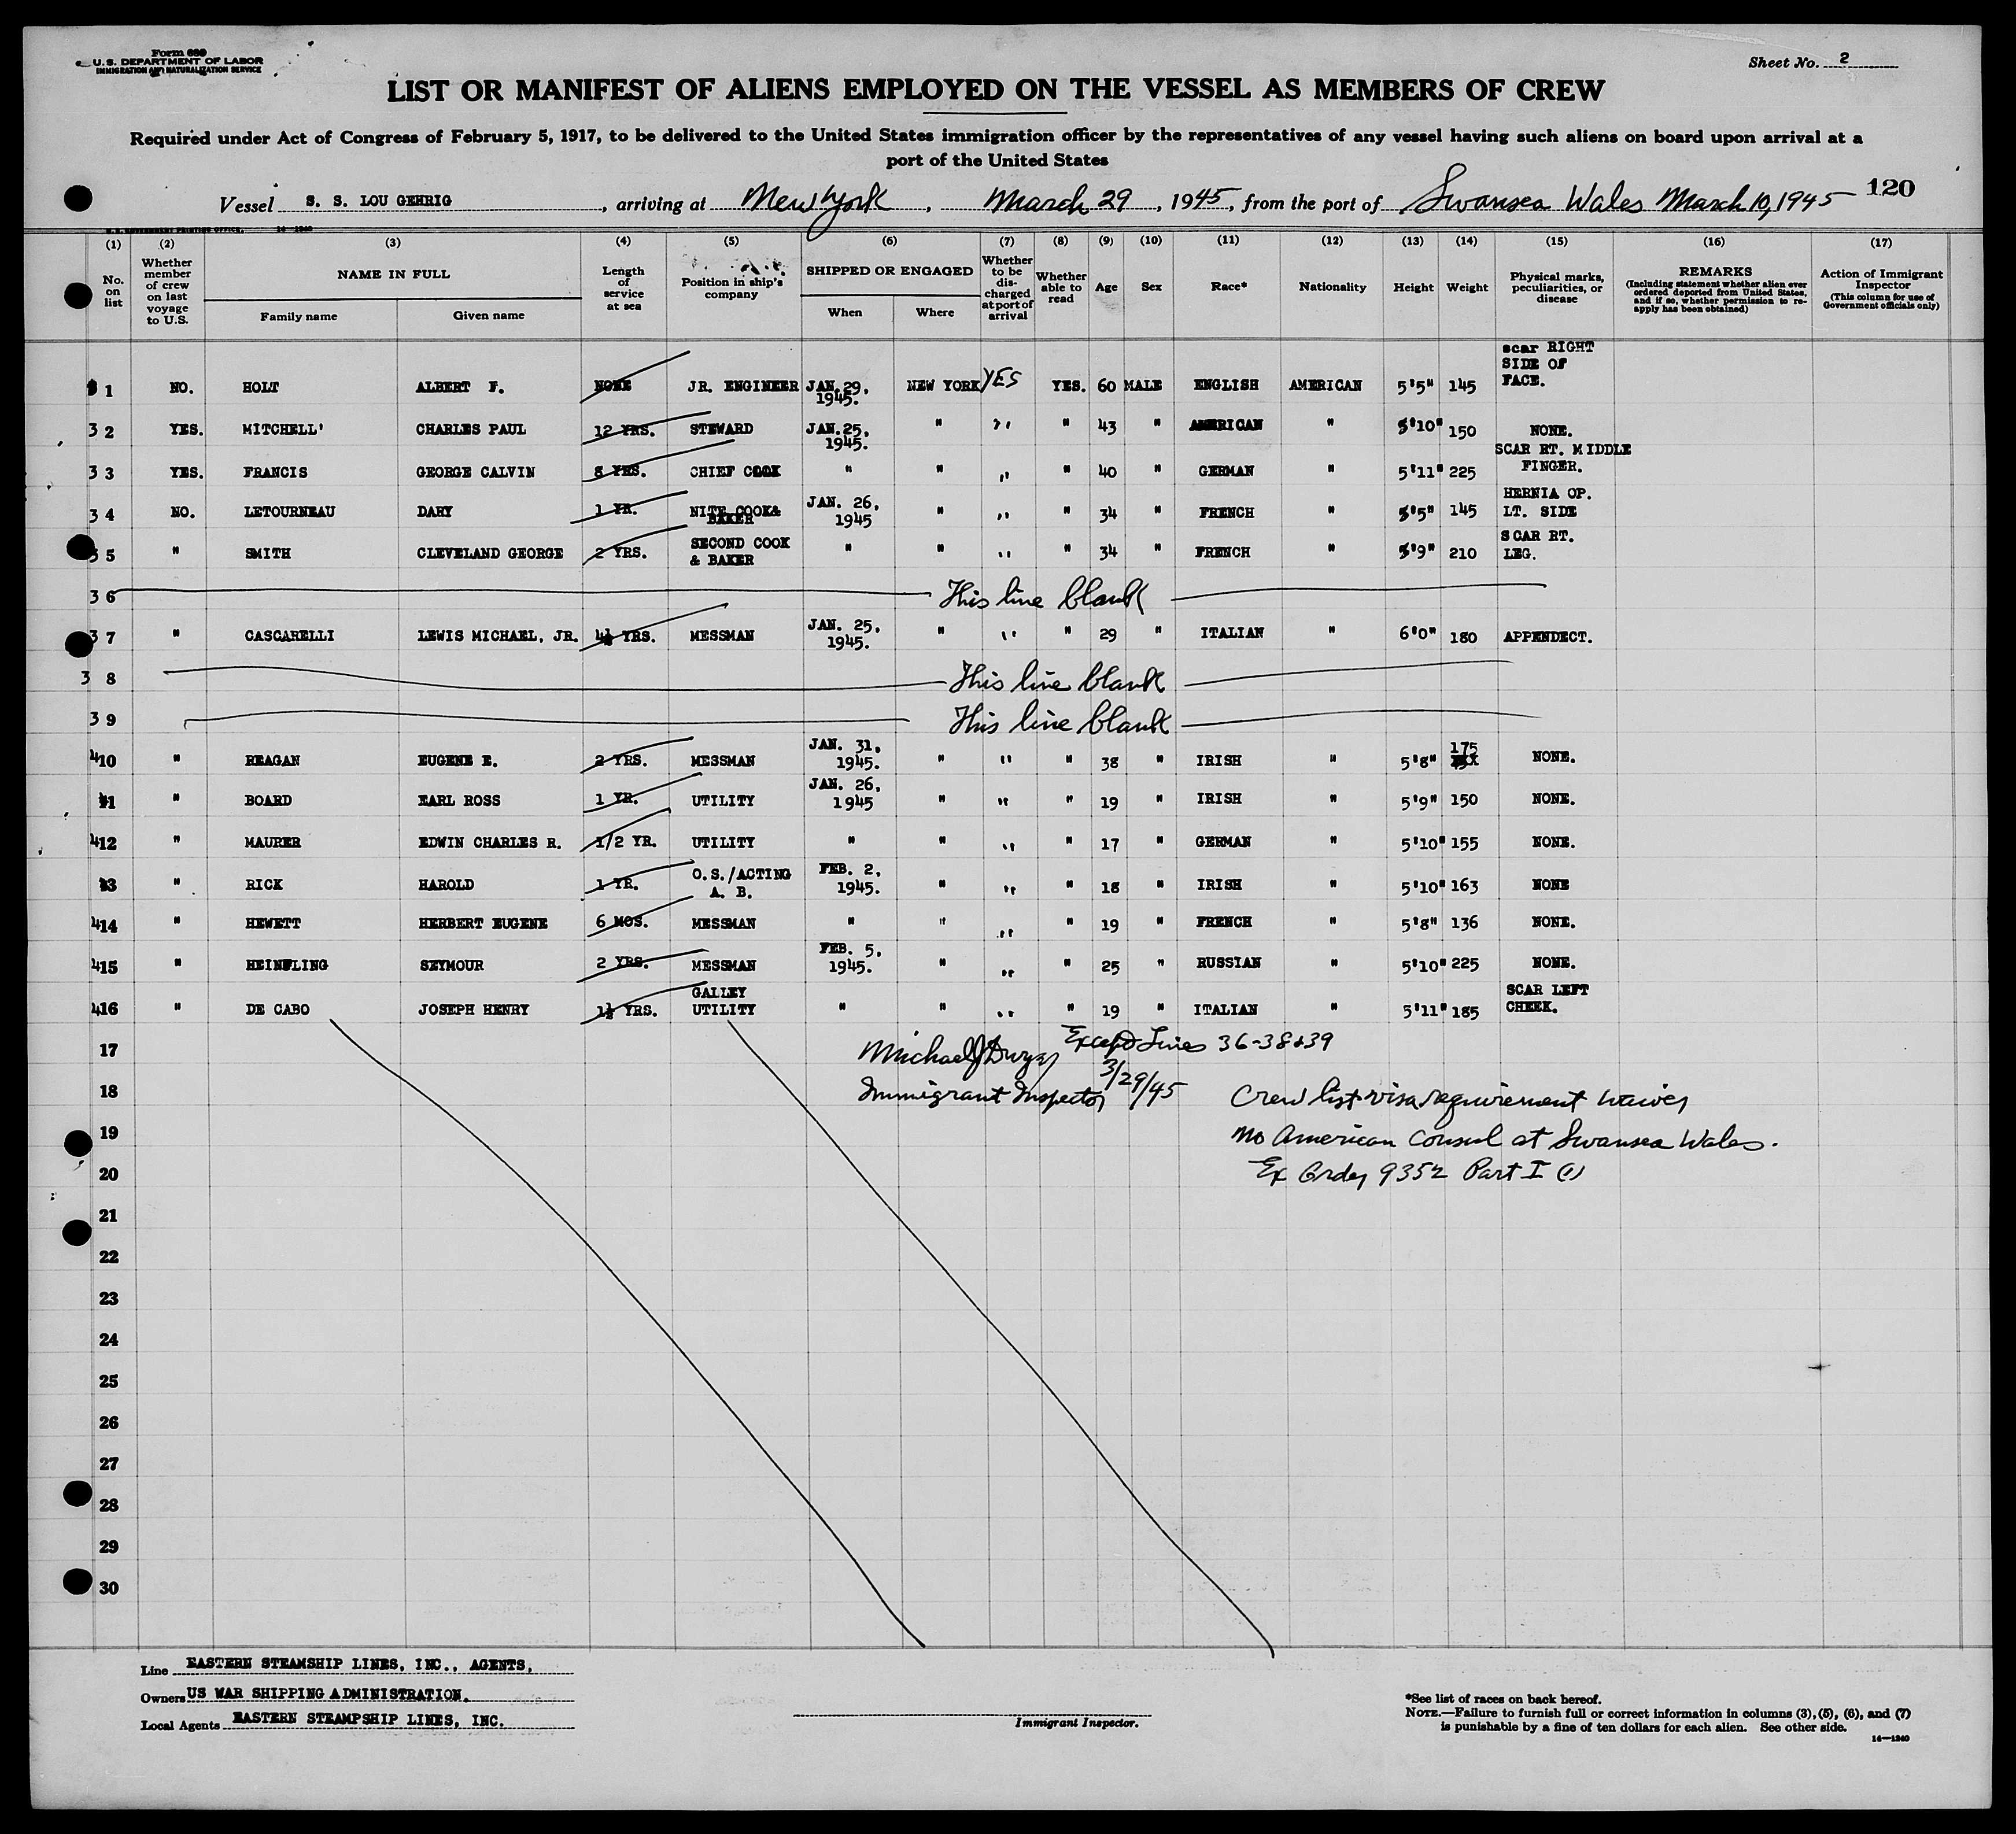 Form 680
U. S. DEPARTMENT OF LABOR
IMMIGRATION AND NATURALIZATION SERVICE
Sheet No. 2
LIST OR MANIFEST OF ALIENS EMPLOYED ON THE VESSEL AS MEMBERS OF CREW
Required under Act of Congress of February 5, 1917, to be delivered to the United States immigration officer by the representatives of any vessel having such aliens on board upon arrival at a
port of the United States
Vessel S. S. LOU GEHRIG, arriving at New York, March 29, 1945, from the port of Swansea Wales March 10, 1945 120
U.S. GOVERNMENT PRINTING OFFICE. 14-1240
(1) (2) (3) (4) (5) (6) (7) (8) (9) (10) (11) (12) (13) (14) (15) (16) (17)
No. on list
Whether member of crew on last voyage to U.S.
NAME IN FULL
Family name Given name
Length of service at sea
Position in ship's company
SHIPPED OR ENGAGED
When Where
Whether to be discharged at port of arrival
Whether able to read
Age
Sex
Race*
Nationality
Height
Weight
Physical marks, peculiarities, or disease
REMARKS
(Including statement whether alien ever ordered deported from United States, and if so, whether permission to re-apply has been obtained)
Action of Immigrant Inspector
(This column for use of Government officials only)
1 NO. HOLT ALBERT F. NONE JR. ENGINEER JAN 29, 1945. NEW YORK YES YES. 60 MALE ENGLISH AMERICAN 5'5" 145 scar RIGHT SIDE OF FACE.
3 2 YES. MITCHELL' CHARLES PAUL 12 YRS. STEWARD JAN.25, 1945. " " " 43 " AMERICAN " 5'10" 150 NONE.
3 3 YES. FRANCIS GEORGE CALVIN 8 YRS. CHIEF COOK " " " " 40 " GERMAN " 5'11" 225 SCAR RT. MIDDLE FINGER.
3 4 NO. LETOURNEAU DARY 1 YR. NITE COOK& BAKER JAN. 26, 1945 " " " 34 " FRENCH " 5'5" 145 HERNIA OP. LT. SIDE
3 5 " SMITH CLEVELAND GEORGE 2 YRS. SECOND COOK & BAKER " " " " 34 " FRENCH " 5'9" 210 SCAR RT. LEG.
3 6 This line blank
3 7 " CASCARELLI LEWIS MICHAEL, JR. 4½ YRS. MESSMAN JAN. 25, 1945. " " " 29 " ITALIAN " 6'0" 180 APPENDECT.
3 8 This line blank
3 9 This line blank
410 " REAGAN EUGENE E. 2 YRS. MESSMAN JAN. 31, 1945. " " " 38 " IRISH " 5'8" 175 NONE.
41 " BOARD EARL ROSS 1 YR. UTILITY JAN. 26, 1945 " " " 19 " IRISH " 5'9" 150 NONE.
412 " MAURER EDWIN CHARLES R. 1/2 YR. UTILITY " " " " 17 " GERMAN " 5'10" 155 NONE.
43 " RICK HAROLD 1 YR. O.S./ACTING A. B. FEB. 2, 1945. " " " 18 " IRISH " 5'10" 163 NONE
414 " HEWETT HERBERT EUGENE 6 MOS. MESSMAN " " " " 19 " FRENCH " 5'8" 136 NONE.
415 " HEINFLING SEYMOUR 2 YRS. MESSMAN FEB. 5, 1945. " " " 25 " RUSSIAN " 5'10" 225 NONE.
416 " DE CABO JOSEPH HENRY 1½ YRS. GALLEY UTILITY " " " " 19 " ITALIAN " 5'11" 185 SCAR LEFT CHEEK.
17 Michael J Dwyer Except Lines 36-38&39
18 Immigrant Inspector 3/29/45 Crew list visa requirement waived
19 no American Consul at Swansea Wales.
20 Ex Order 9352 Part I (1)
21
22
23
24
25
26
27
28
29
30
Line EASTERN STEAMSHIP LINES, INC., AGENTS,
Owners US WAR SHIPPING ADMINISTRATION.
Local Agents EASTERN STEAMPSHIP LINES, INC.
Immigrant Inspector.
*See list of races on back hereof.
NOTE.—Failure to furnish full or correct information in columns (3), (5), (6), and (7)
is punishable by a fine of ten dollars for each alien. See other side.
14—1240